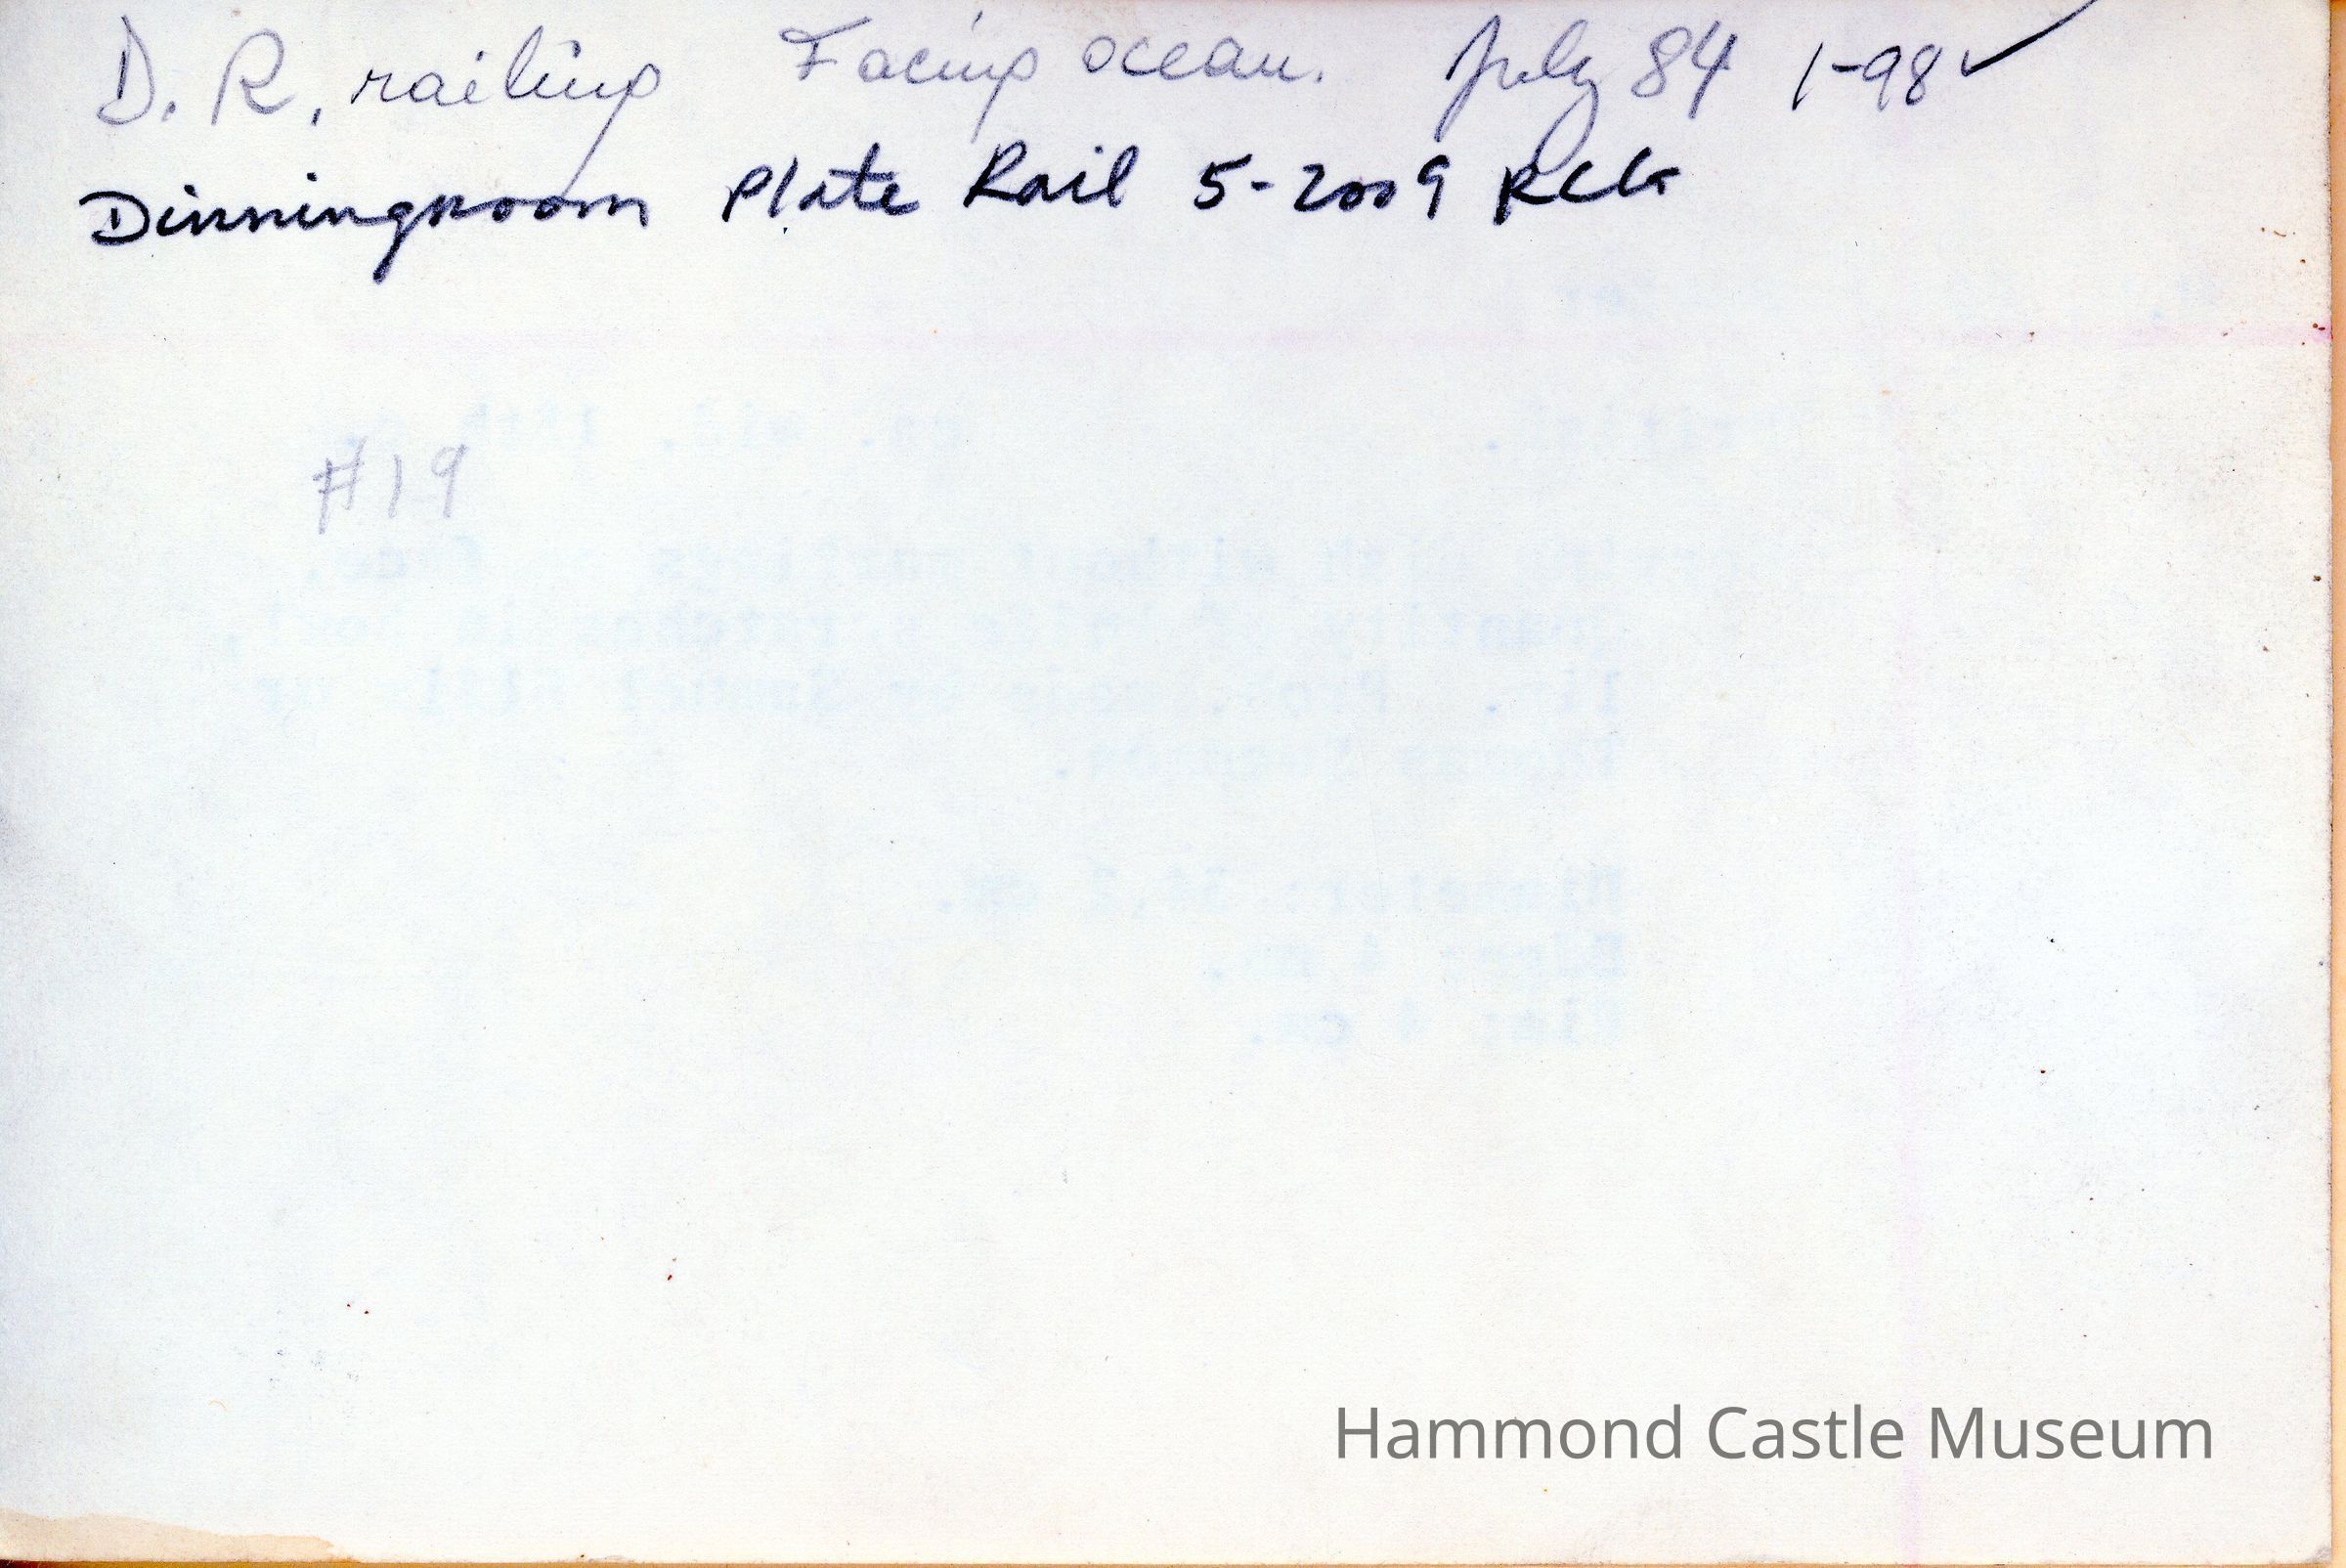 D. R. railing Facing ocean. July 84 1-98✓
Dinningroom Plate Rail 5-2009 RCG
#19
Hammond Castle Museum